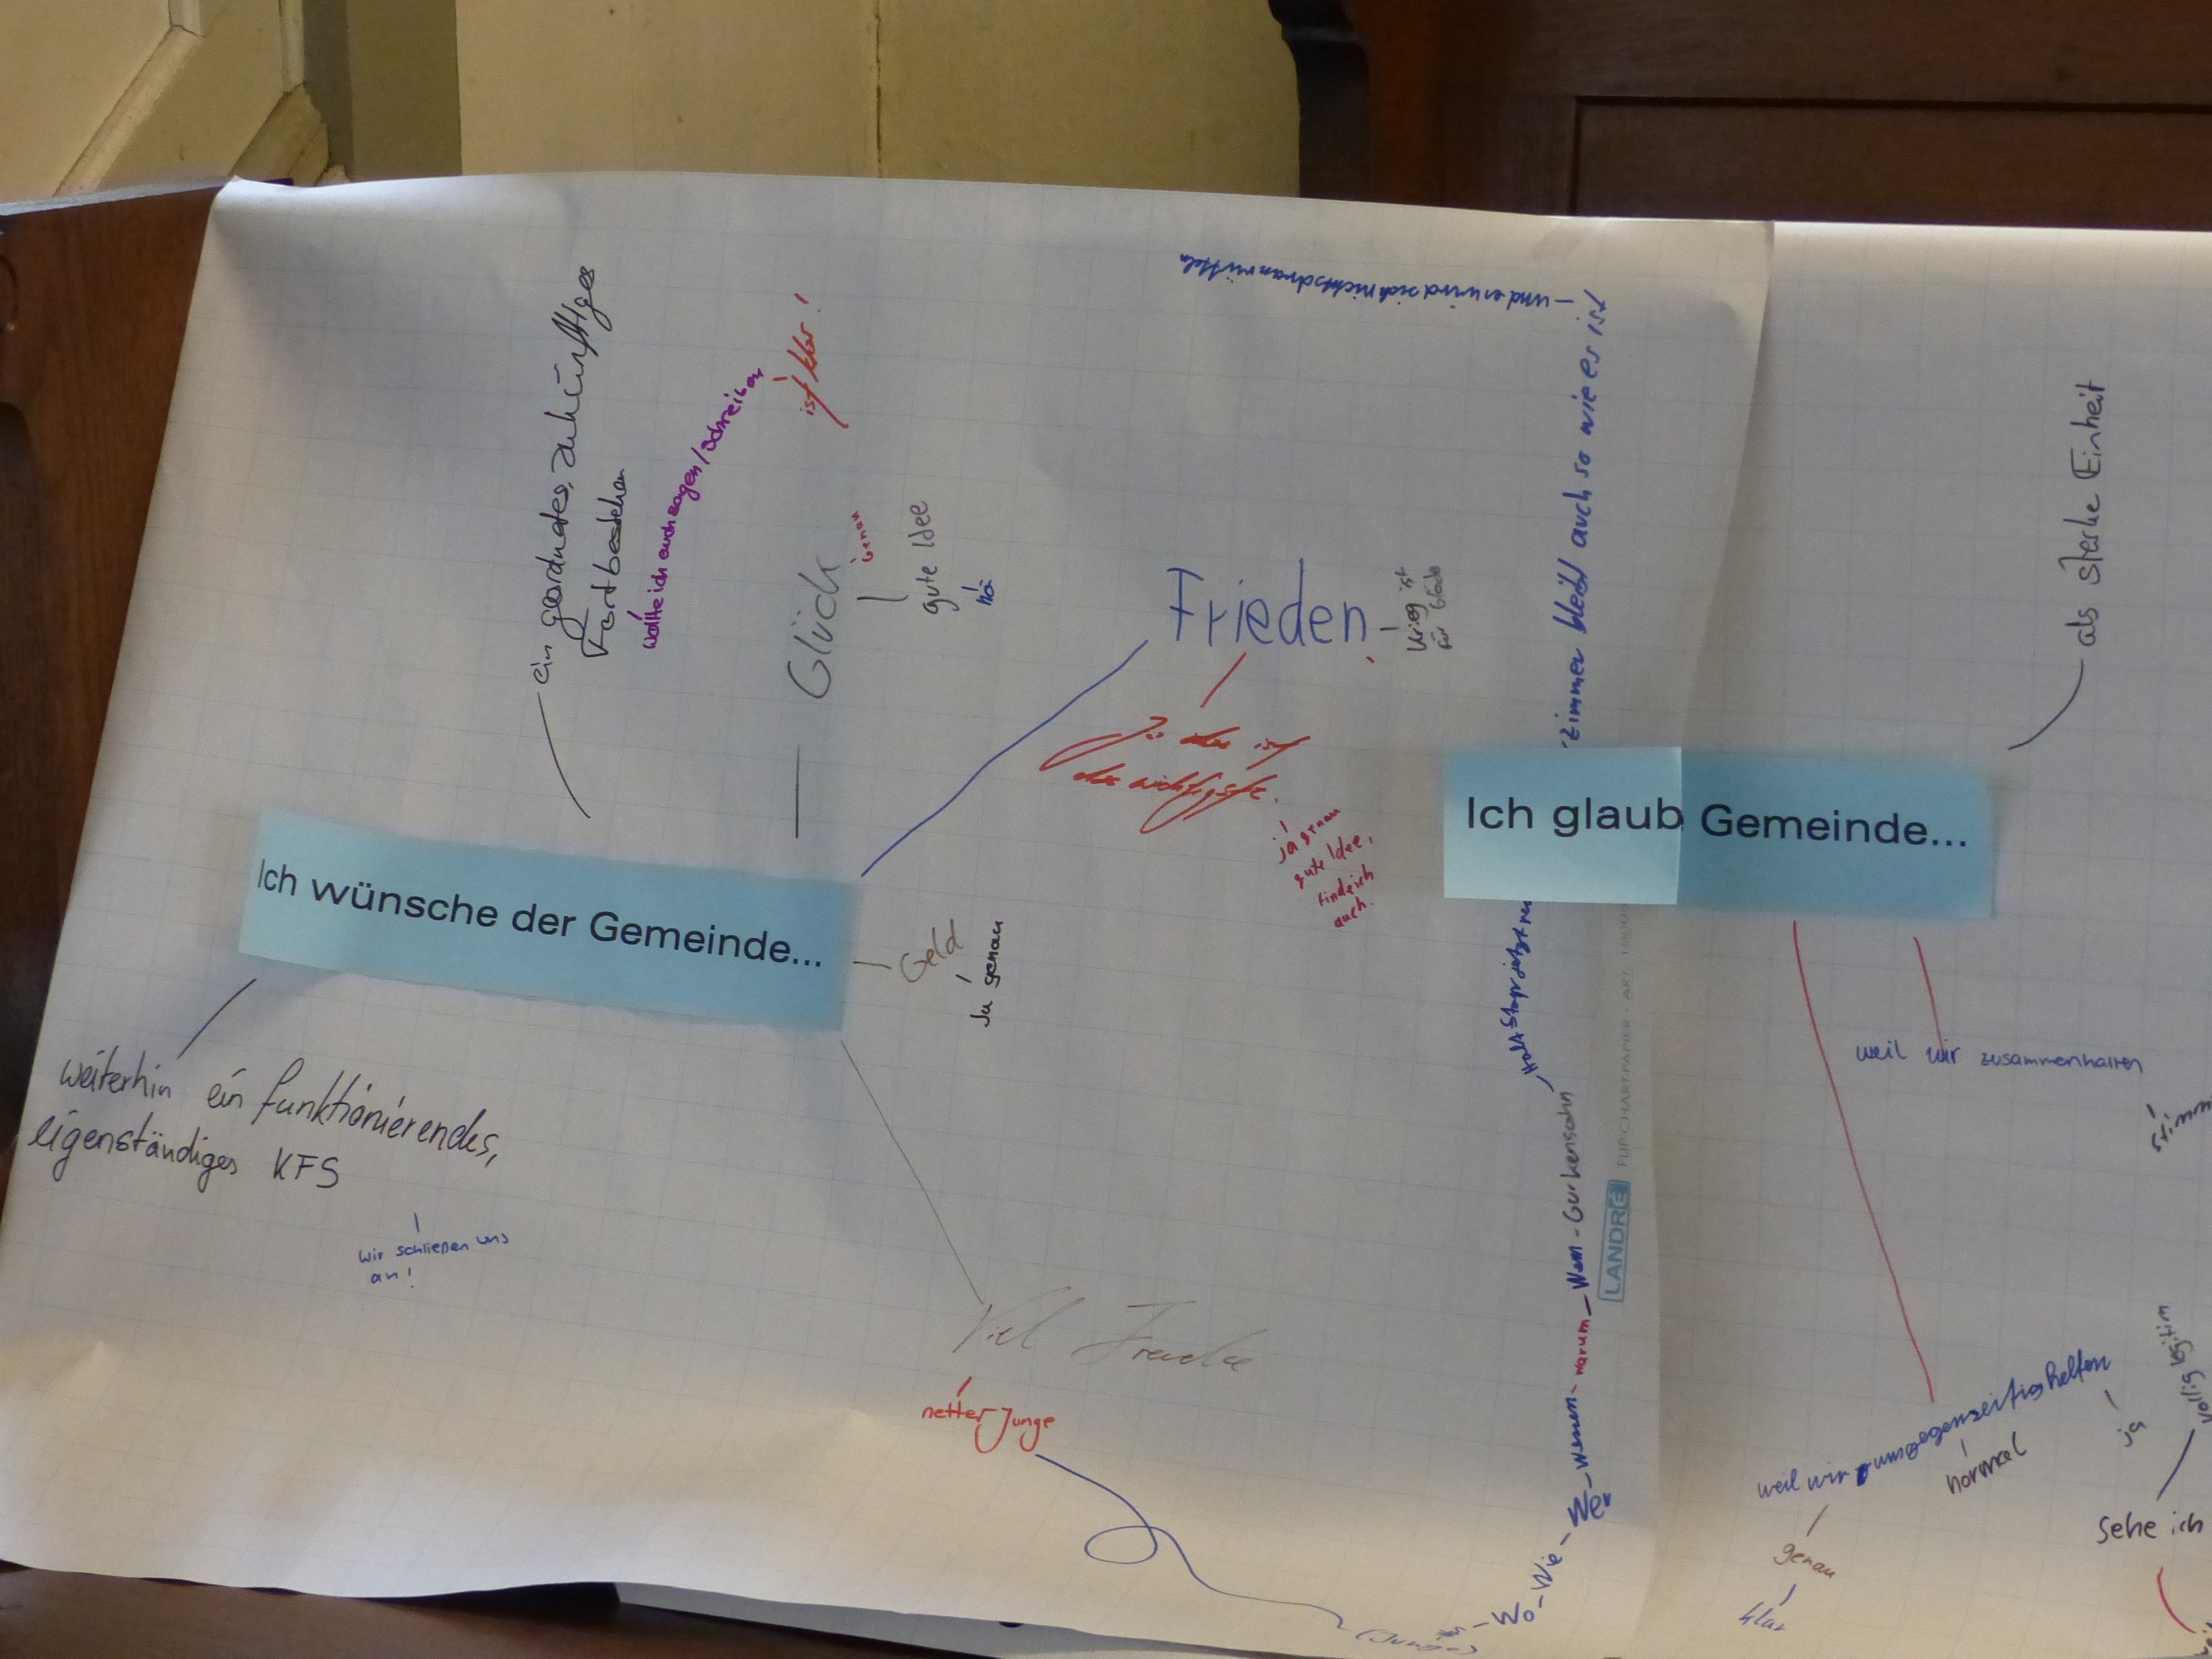 Ich wünsche der Gemeinde...
ein geordnetes, zukünftiges
Fortbestehen
wollte ich auch sagen/schreiben
ist klar!
Glück
genau
gute Idee
Frieden
Krieg ist
für
Ja das ist
das wichtigste.
ja genau
gute Idee,
finde ich
auch.
Geld
Ja genau
weiterhin ein funktionierendes,
eigenständiges KFS
wir schließen uns
an!
Viel Freude
netter Junge
(Junge)
Wo - Wie - Wer - wemen - warum - Wem - Gurkensohn
Halt Stop jetzt
zimmer bleibt auch so wie es ist
- und er wird sich nichts dran rütteln
LANDRÉ FLIPCHARTPAPIER - ART.
Ich glaub Gemeinde...
als starke Einheit
weil wir zusammenhalten
weil wir uns gegenseitig helfen
normal
ja
genau
klar
völlig legitim
Sehe ich